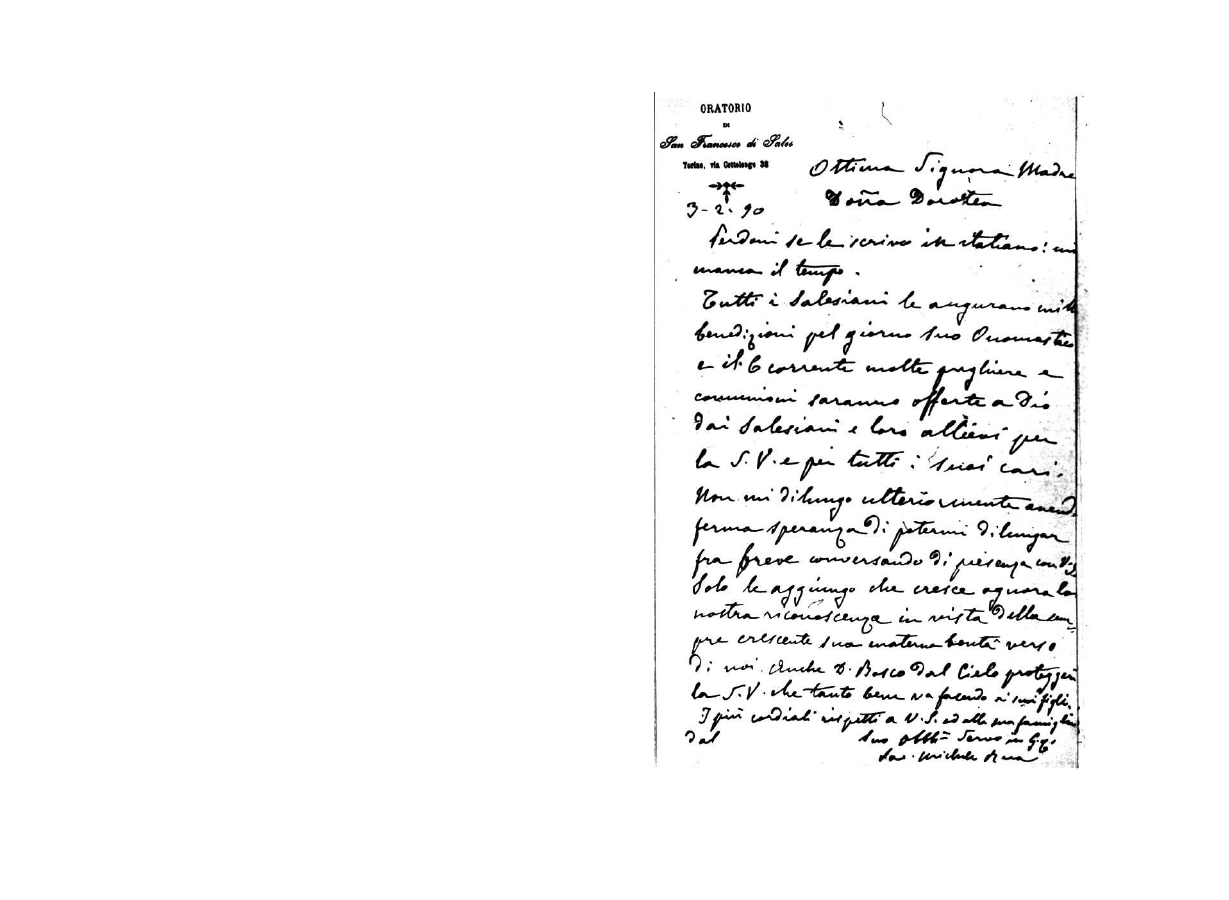 ORATORIO
DI
San Francesco di Sales
Torino, via Cottolengo 32
3-2-90
Ottima Signora Madre
Doña Dorotea
Perdoni se le scrivo in italiano: mi
manca il tempo.
Tutti i Salesiani le augurano mille
benedizioni pel giorno suo Onomastico
e il 6 corrente molte preghiere e
comunioni saranno offerte a Dio
dai Salesiani e loro allievi per
la S.V. e per tutti i suoi cari.
Non mi dilungo ulteriormente avend.
ferma speranza di potermi dilungar
fra breve conversando di presenza con V.S.
Solo le aggiungo che cresce ognora la
nostra riconoscenza in vista della sem-
pre crescente sua materna bontà verso
di noi. Anche D. Bosco dal Cielo proteggerà
la S.V. che tanto bene va facendo ai suoi figli.
I più cordiali rispetti a V.S. ed alla sua famiglia
dal
Suo Obbl= Servo in G.C.
Sac. Michele Rua